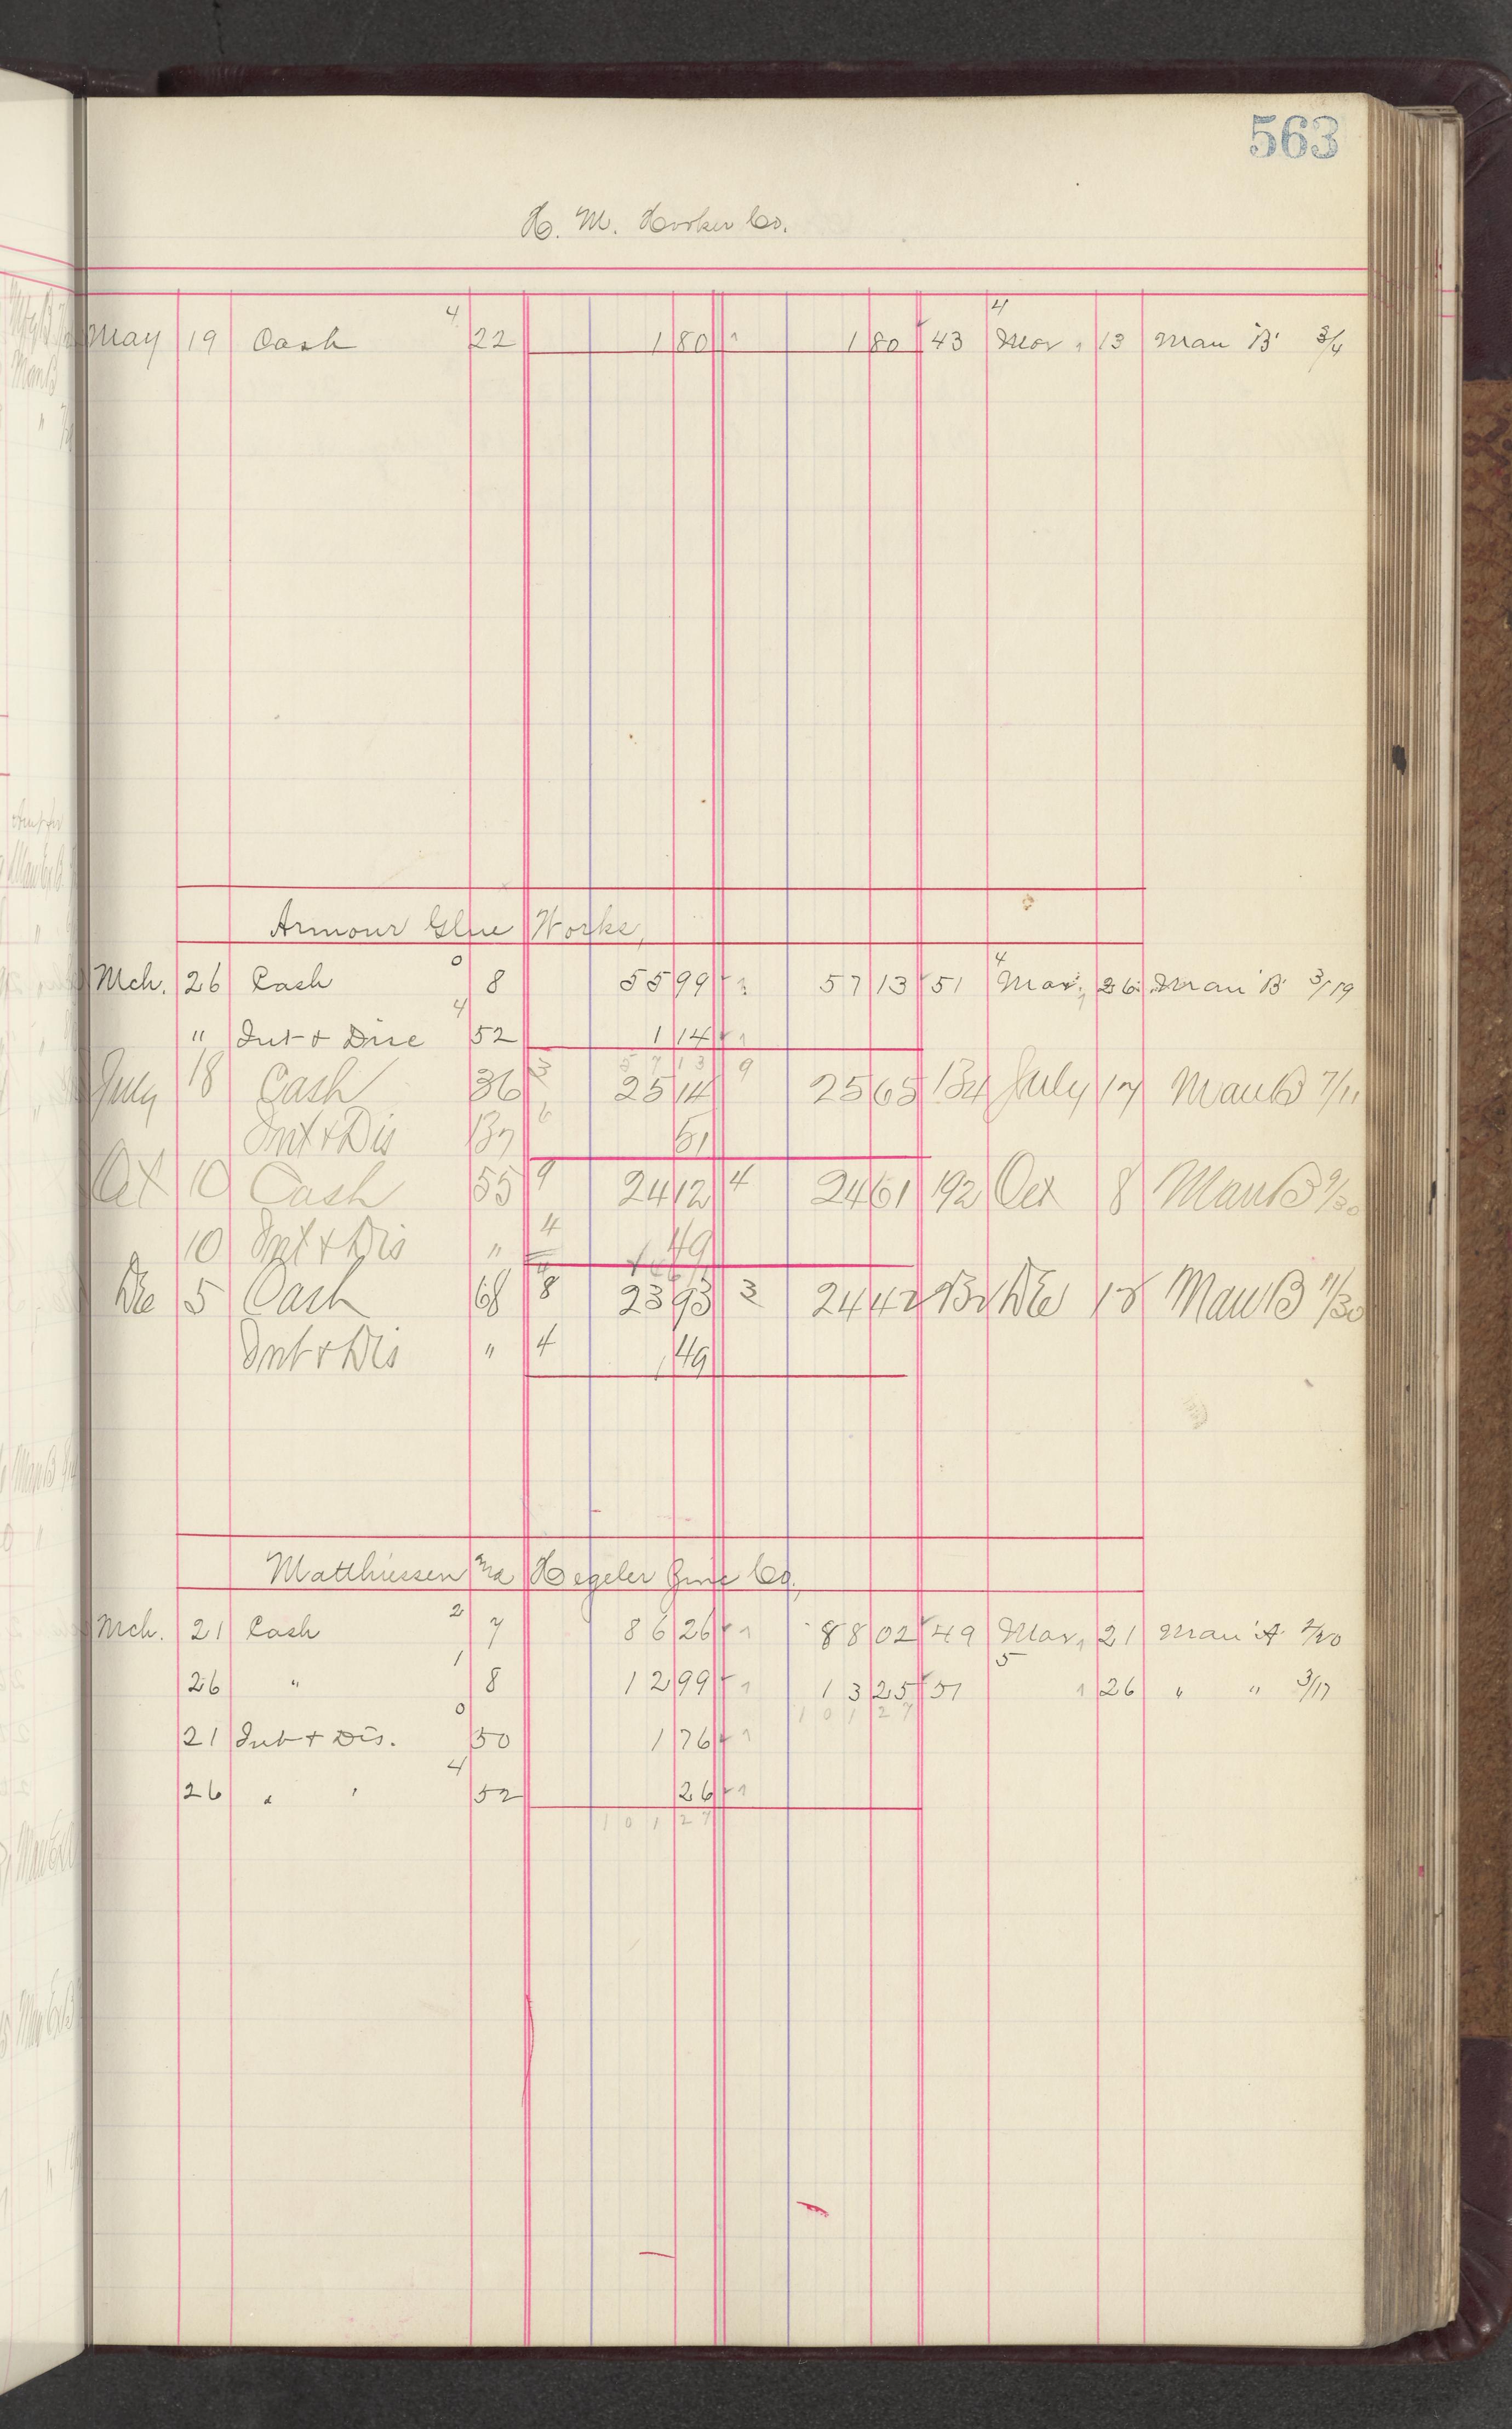 563
H. M. Hooker Co.
4 4
May 19 Cash 22 1 80 1 80 43 Mar 13 Man "B" 3/4
Armour Glue Works,
0 4
Mch. 26 Cash 8 55 99 57 13 51 Mar, 26 Man "B" 3/19
4
" Int & Disc 52 1 14
5 7 1 3
July 18 Cash 36 3 25 14 9 25 65 134 July 17 Man B 7/11
Int & Dis 137 6 51
Oct 10 Cash 55 9 24 12 4 24 61 192 Oct 8 Man B 9/30
10 Int & Dis " 4 49
De 5 Cash 68 8 23 93 3 24 42 De Man B 11/30
Int & Dis " 4 49
Matthiessen and Hegeler Zinc Co,
2
Mch. 21 Cash 7 86 26 88 02 49 Mar, 21 Man "A" 2/20
1 5
26 " 8 12 99 13 25 51 26 " " 3/17
1 0 1 2 7
0
21 Int & Dis. 50 1 76
4
26 " " 52 26
1 0 1 2 7